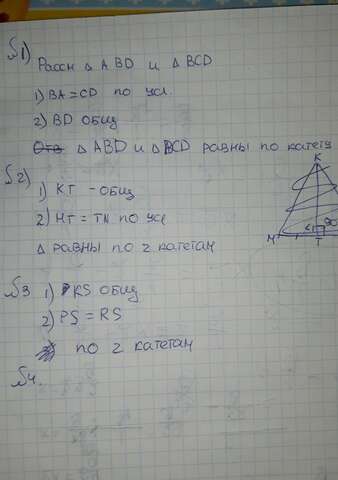 №1)
Рассм △ ABD и △ BCD
1) BA = CD по усл.
2) BD общ
△ ABD и △ BCD равны по катету
№2)
1) KT - общ
2) MT = TN по усл
△ равны по 2 катетам
K
M
T
90
№3 1) KS общ
2) PS = RS
по 2 катетам
№4.